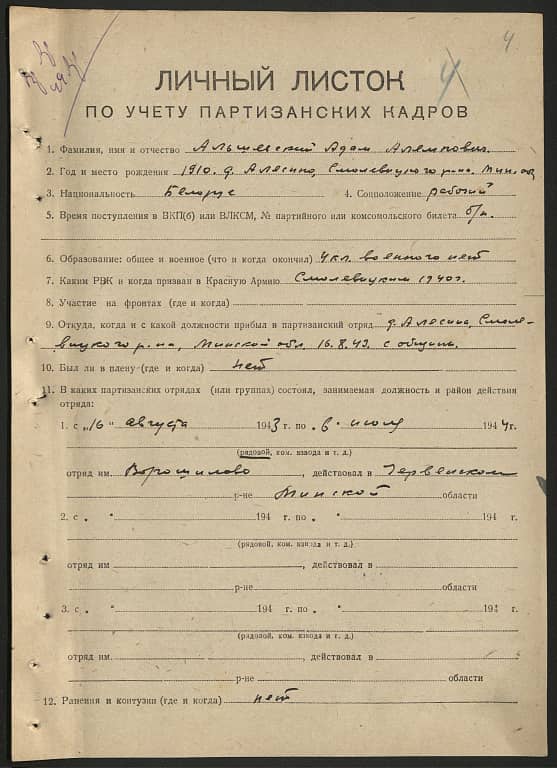 4
ЛИЧНЫЙ ЛИСТОК
ПО УЧЕТУ ПАРТИЗАНСКИХ КАДРОВ
1. Фамилия, имя и отчество Альшевский Адам
2. Год и место рождения 1910. д. Алесино, Смолевицкого р-на. Минской обл
3. Национальность Белорус 4. Соцположение рабочий
5. Время поступления в ВКП(б) или ВЛКСМ, № партийного или комсомольского билета б/п.
6. Образование: общее и военное (что и когда окончил) 4 кл. военного нет
7. Каким РВК и когда призван в Красную Армию Смолевицким 1940г.
8. Участие на фронтах (где и когда)
9. Откуда, когда и с какой должности прибыл в партизанский отряд д. Алесино, Смоле-
вицкого р-на, Минской обл, 16.8.43.
10. Был ли в плену (где и когда) нет
11. В каких партизанских отрядах (или группах) состоял, занимаемая должность и район действия
отряда:
1. с „16" августа 1943 г. по „6" июля 1944 г.
(рядовой, ком. взвода и т. д.)
отряд им. Ворошилова, действовал в Червенском
р-не Минской области
2. с „ " 194 г. по „ " 194 г.
(рядовой, ком. взвода и т. д.)
отряд им , действовал в
р-не области
3. с „ " 194 г. по „ " 194 г.
(рядовой, ком. взвода и т. д.)
отряд им. , действовал в
р-не области
12. Ранения и контузии (где и когда) нет